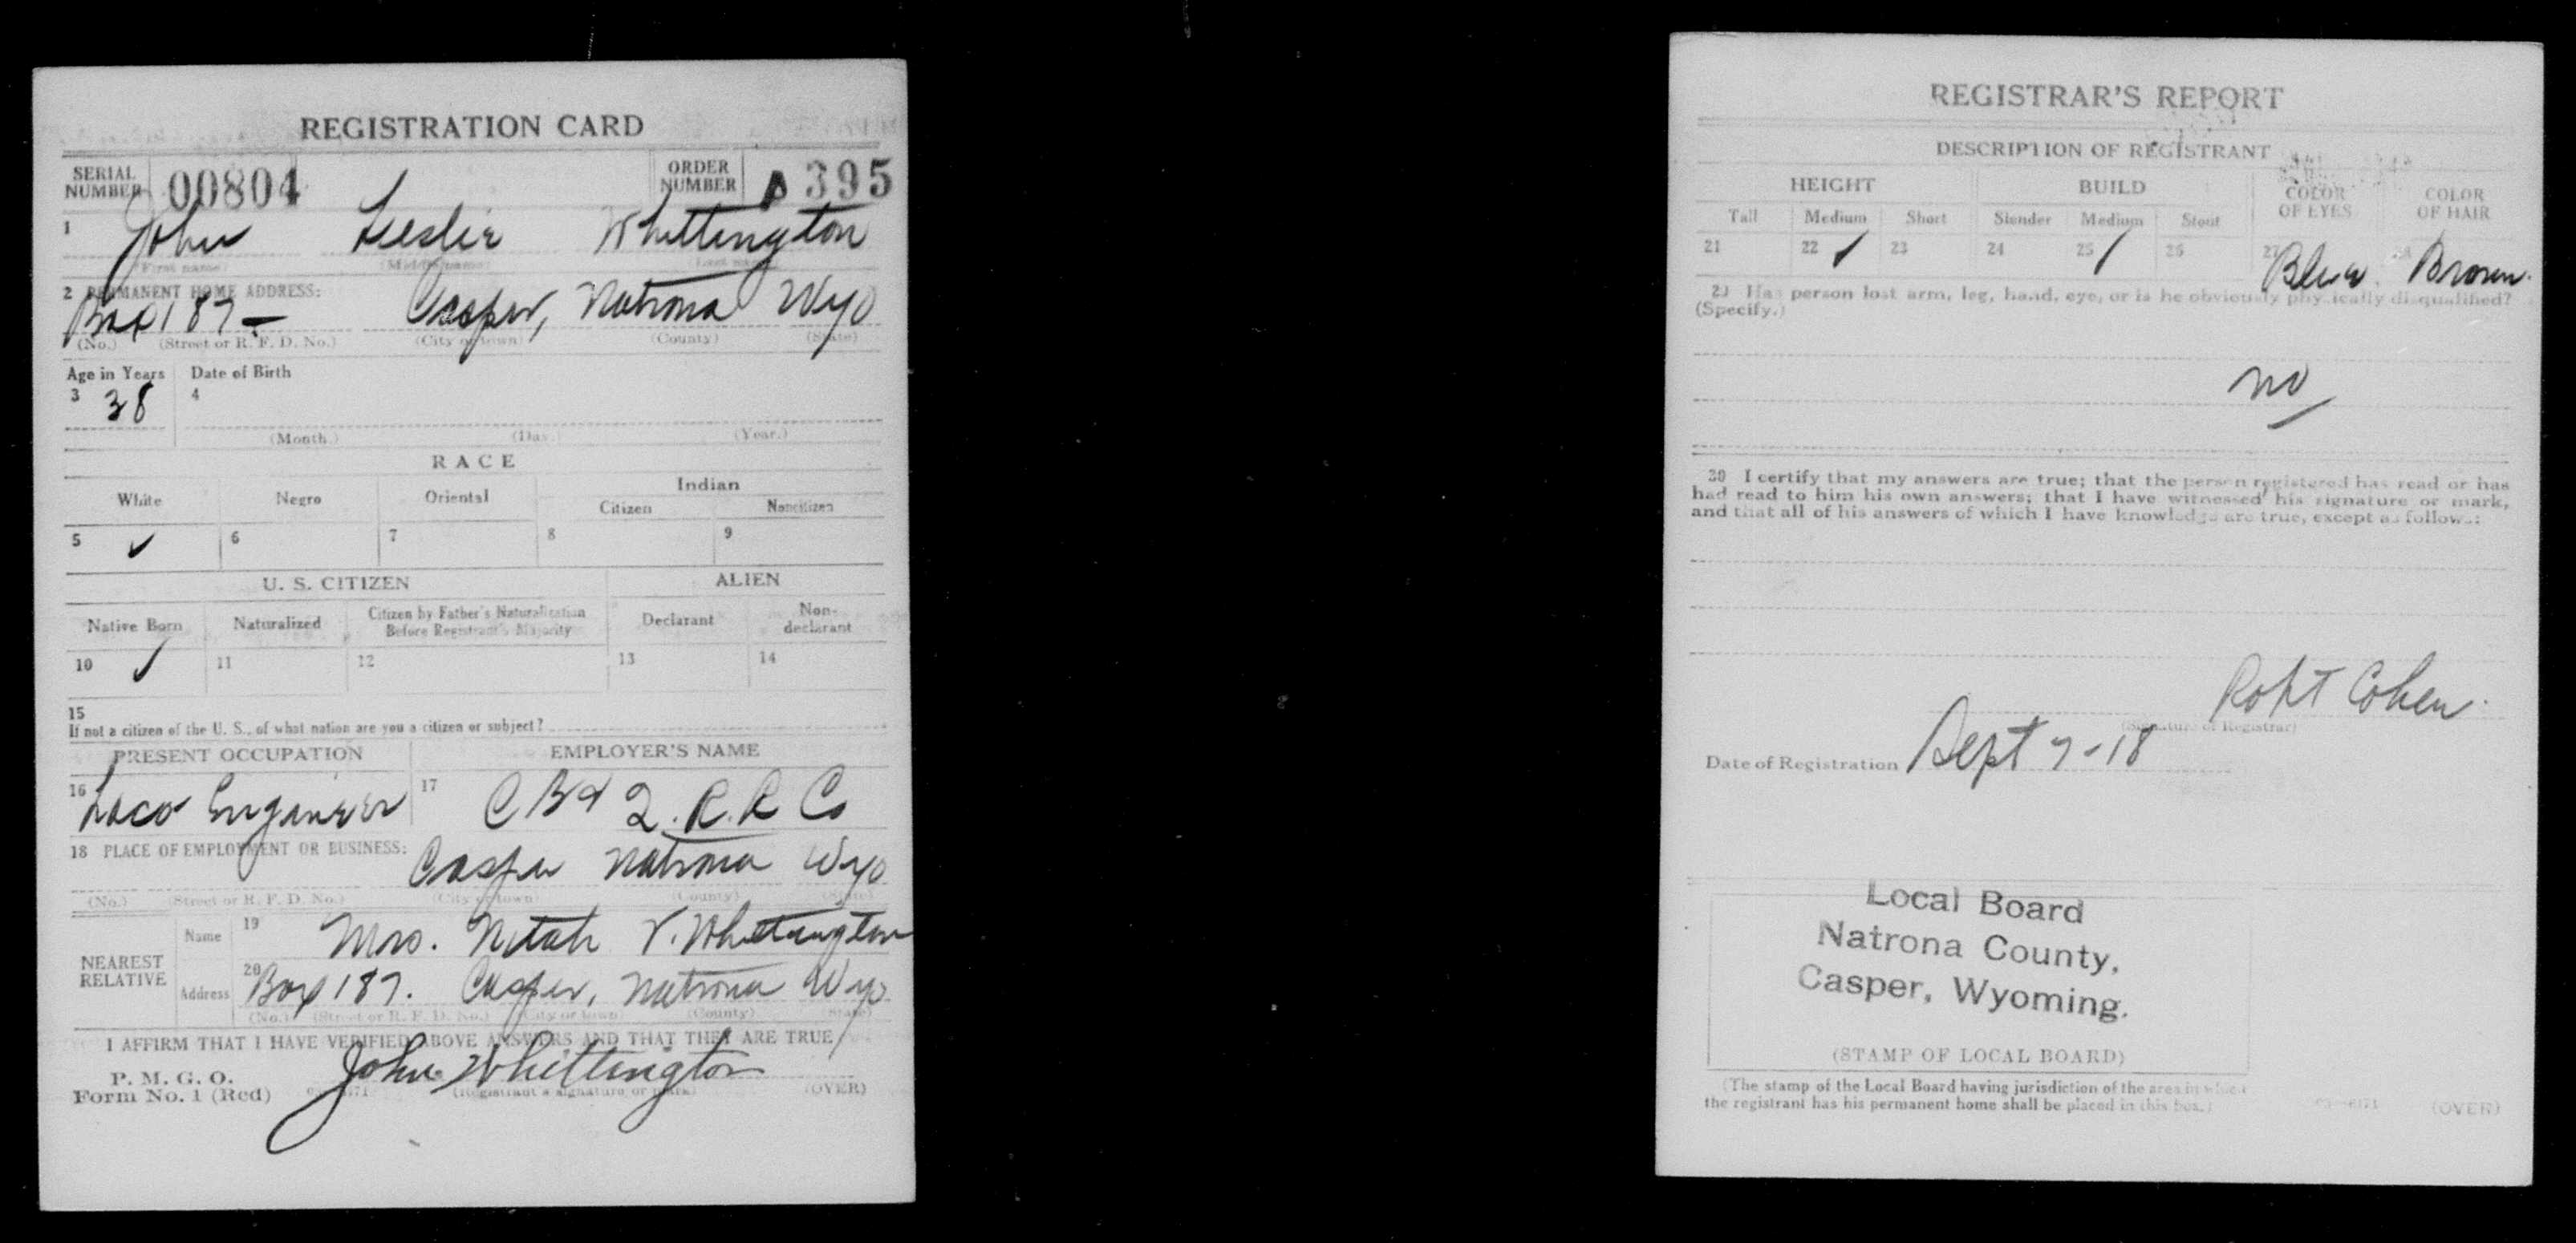 REGISTRATION CARD
SERIAL NUMBER 00804 ORDER NUMBER A 395
1 John Leslie Whittington
(First name) (Middle name) (Last name)
2 PERMANENT HOME ADDRESS:
Box 187 - Casper, Natrona Wyo
(No.) (Street or R. F. D. No.) (City or town) (County) (State)
Age in Years Date of Birth
3 38 4
(Month.) (Day.) (Year.)
RACE
White Negro Oriental Indian
Citizen Noncitizen
5 ✓ 6 7 8 9
U. S. CITIZEN ALIEN
Native Born Naturalized Citizen by Father's Naturalization Before Registrant's Majority Declarant Non-declarant
10 ✓ 11 12 13 14
15
If not a citizen of the U. S., of what nation are you a citizen or subject?
PRESENT OCCUPATION EMPLOYER'S NAME
16 Loco Engineer 17 C B & Q. R. R Co
18 PLACE OF EMPLOYMENT OR BUSINESS:
Casper Natrona Wyo
(No.) (Street or R. F. D. No.) (City or town) (County) (State)
NEAREST RELATIVE Name 19 Mrs. Netah V. Whittington
Address 20 Box 187. Casper, Natrona Wyo
(No.) (Street or R. F. D. No.) (City or town) (County) (State)
I AFFIRM THAT I HAVE VERIFIED ABOVE ANSWERS AND THAT THEY ARE TRUE
P. M. G. O.
Form No. 1 (Red) John Whittington (OVER)
(Registrant's signature or mark)
REGISTRAR'S REPORT
DESCRIPTION OF REGISTRANT
HEIGHT BUILD COLOR OF EYES COLOR OF HAIR
Tall Medium Short Slender Medium Stout
21 22 ✓ 23 24 25 ✓ 26 27 Blue. 28 Brown.
29 Has person lost arm, leg, hand, eye, or is he obviously physically disqualified?
(Specify.)
no
30 I certify that my answers are true; that the person registered has read or has
had read to him his own answers; that I have witnessed his signature or mark,
and that all of his answers of which I have knowledge are true, except as follows:
Robt Cohen.
(Signature of Registrar)
Date of Registration Sept 7-18
Local Board
Natrona County,
Casper, Wyoming.
(STAMP OF LOCAL BOARD)
(The stamp of the Local Board having jurisdiction of the area in which
the registrant has his permanent home shall be placed in this box.)
03—6171 (OVER)